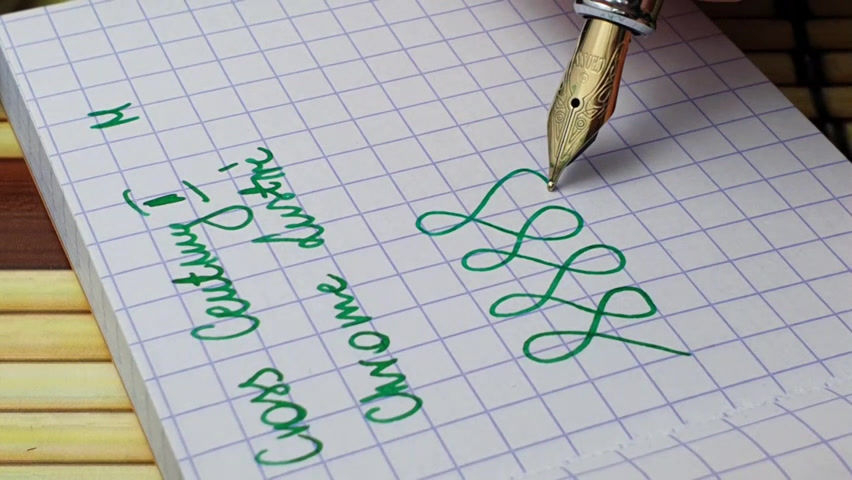 Cross Century II M
Chrome lustré